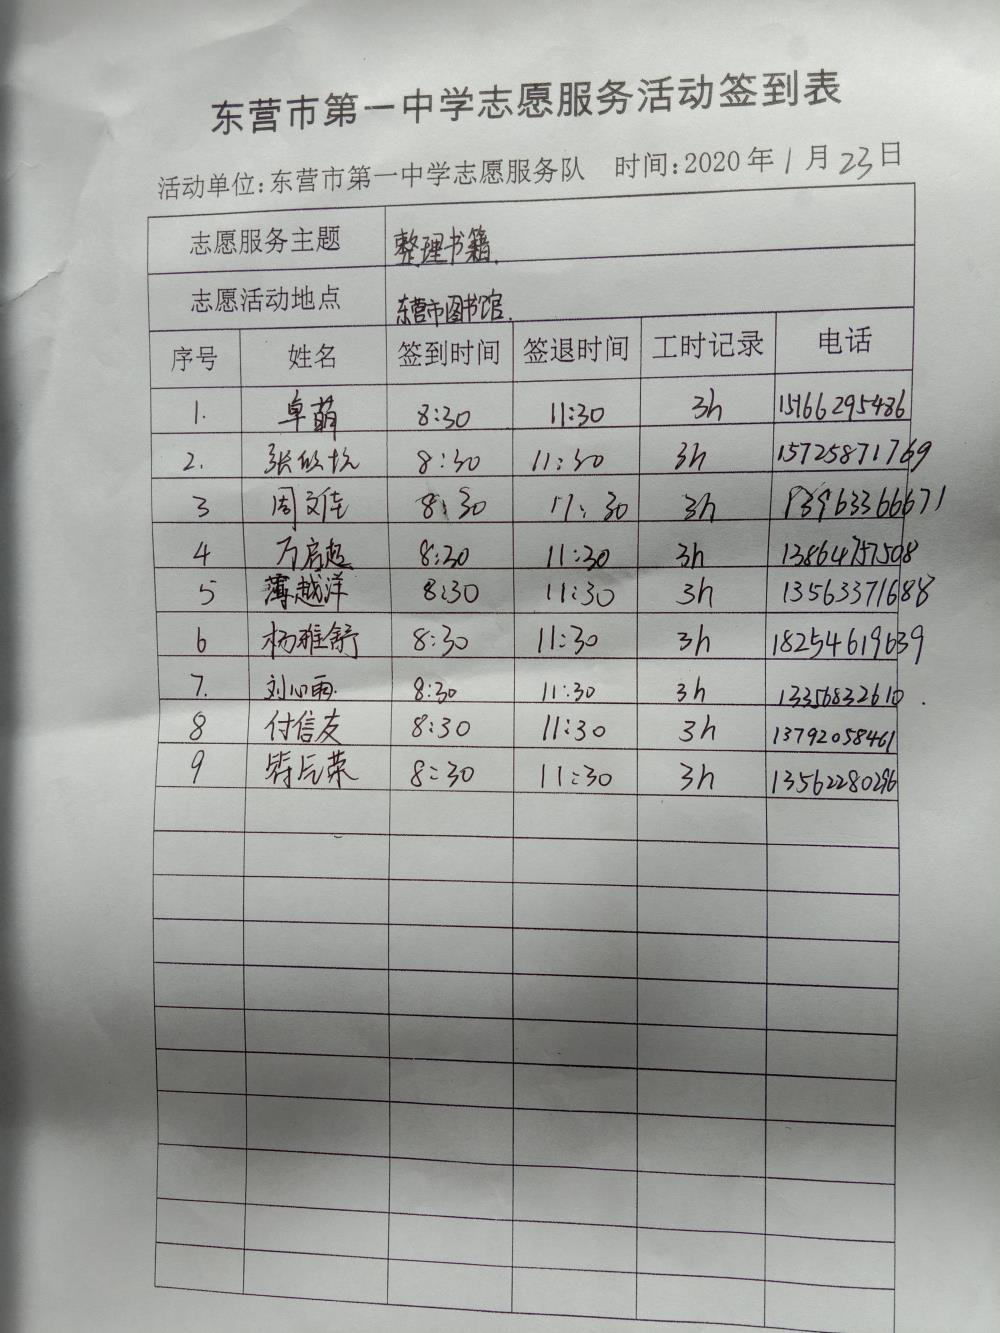 东营市第一中学志愿服务活动签到表
活动单位:东营市第一中学志愿服务队 时间:2020年1月23日
志愿服务主题 整理书籍.
志愿活动地点 东营市图书馆.
序号 姓名 签到时间 签退时间 工时记录 电话
1. 卓萌 8:30 11:30 3h 15166295486
2. 张 8:30 11:30 3h 15725871769
3 周文佳 8:30 11:30 3h 13963366671
4 万启超 8:30 11:30 3h 13864757508
5 薄越洋 8:30 11:30 3h 13563371688
6 杨雅舒 8:30 11:30 3h 18254619639
7. 刘心雨. 8:30 11:30 3h 13356832610.
8 付信友 8:30 11:30 3h 13792058461
9 8:30 11:30 3h 13562280296